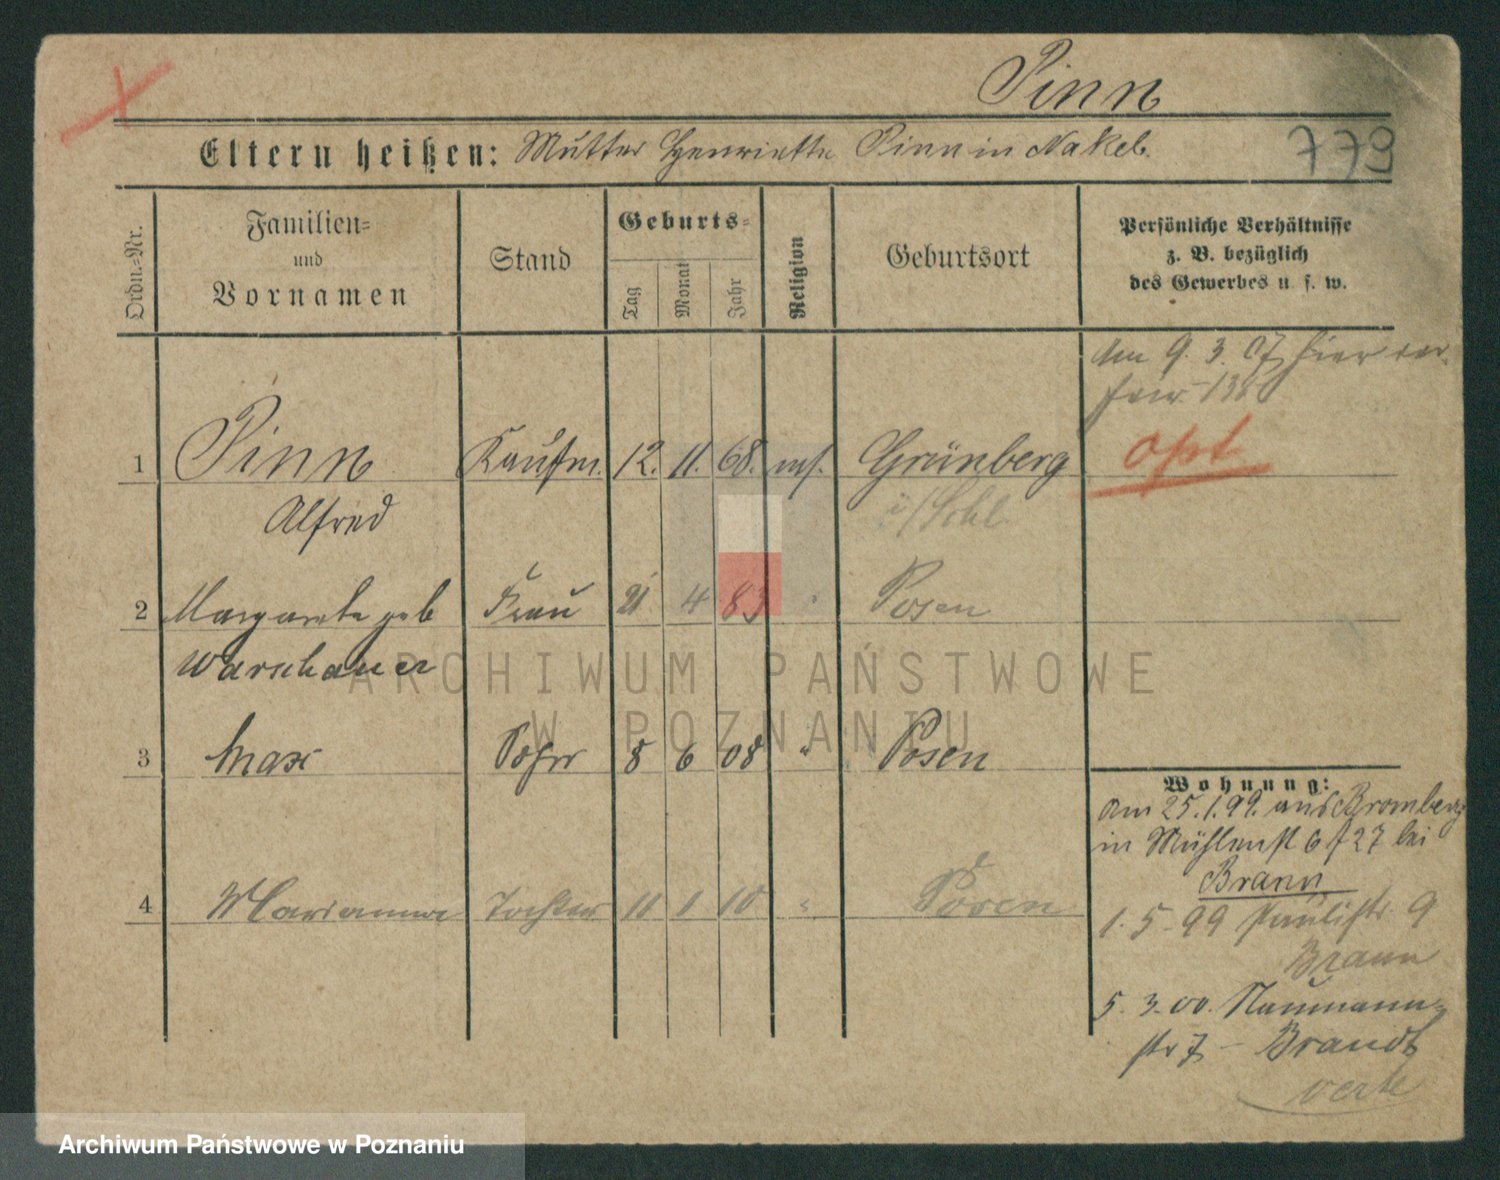 Pinn
Eltern heißen: Mutter Henriette Pinn in Nakel.
779
Ordn.-Nr.
Familien-
und
Vornamen
Stand
Geburts-
Tag
Monat
Jahr
Religion
Geburtsort
Persönliche Verhältnisse
z. B. bezüglich
des Gewerbes u. s. w.
Am 9. 3. 07 hier
1 Pinn Kaufm. 12. 11. 68. mos. Grünberg
opt
Alfred i/Schl.
2 Margarete geb Frau 21 4 83 " Posen
Warschauer
ARCHIWUM PAŃSTWOWE
W POZNANIU
3 Max Sohn 8 6 08 " Posen
Wohnung:
am 25.1.99. aus Bromberg
in Mühlenst 6 f 27 bei
Brann
4 Marianne Tochter 10 1 10 " Posen
1. 5. 99 Paulistr. 9
Brann
5. 3. 00. Naumann-
str 7 – Brandt
verte
Archiwum Państwowe w Poznaniu